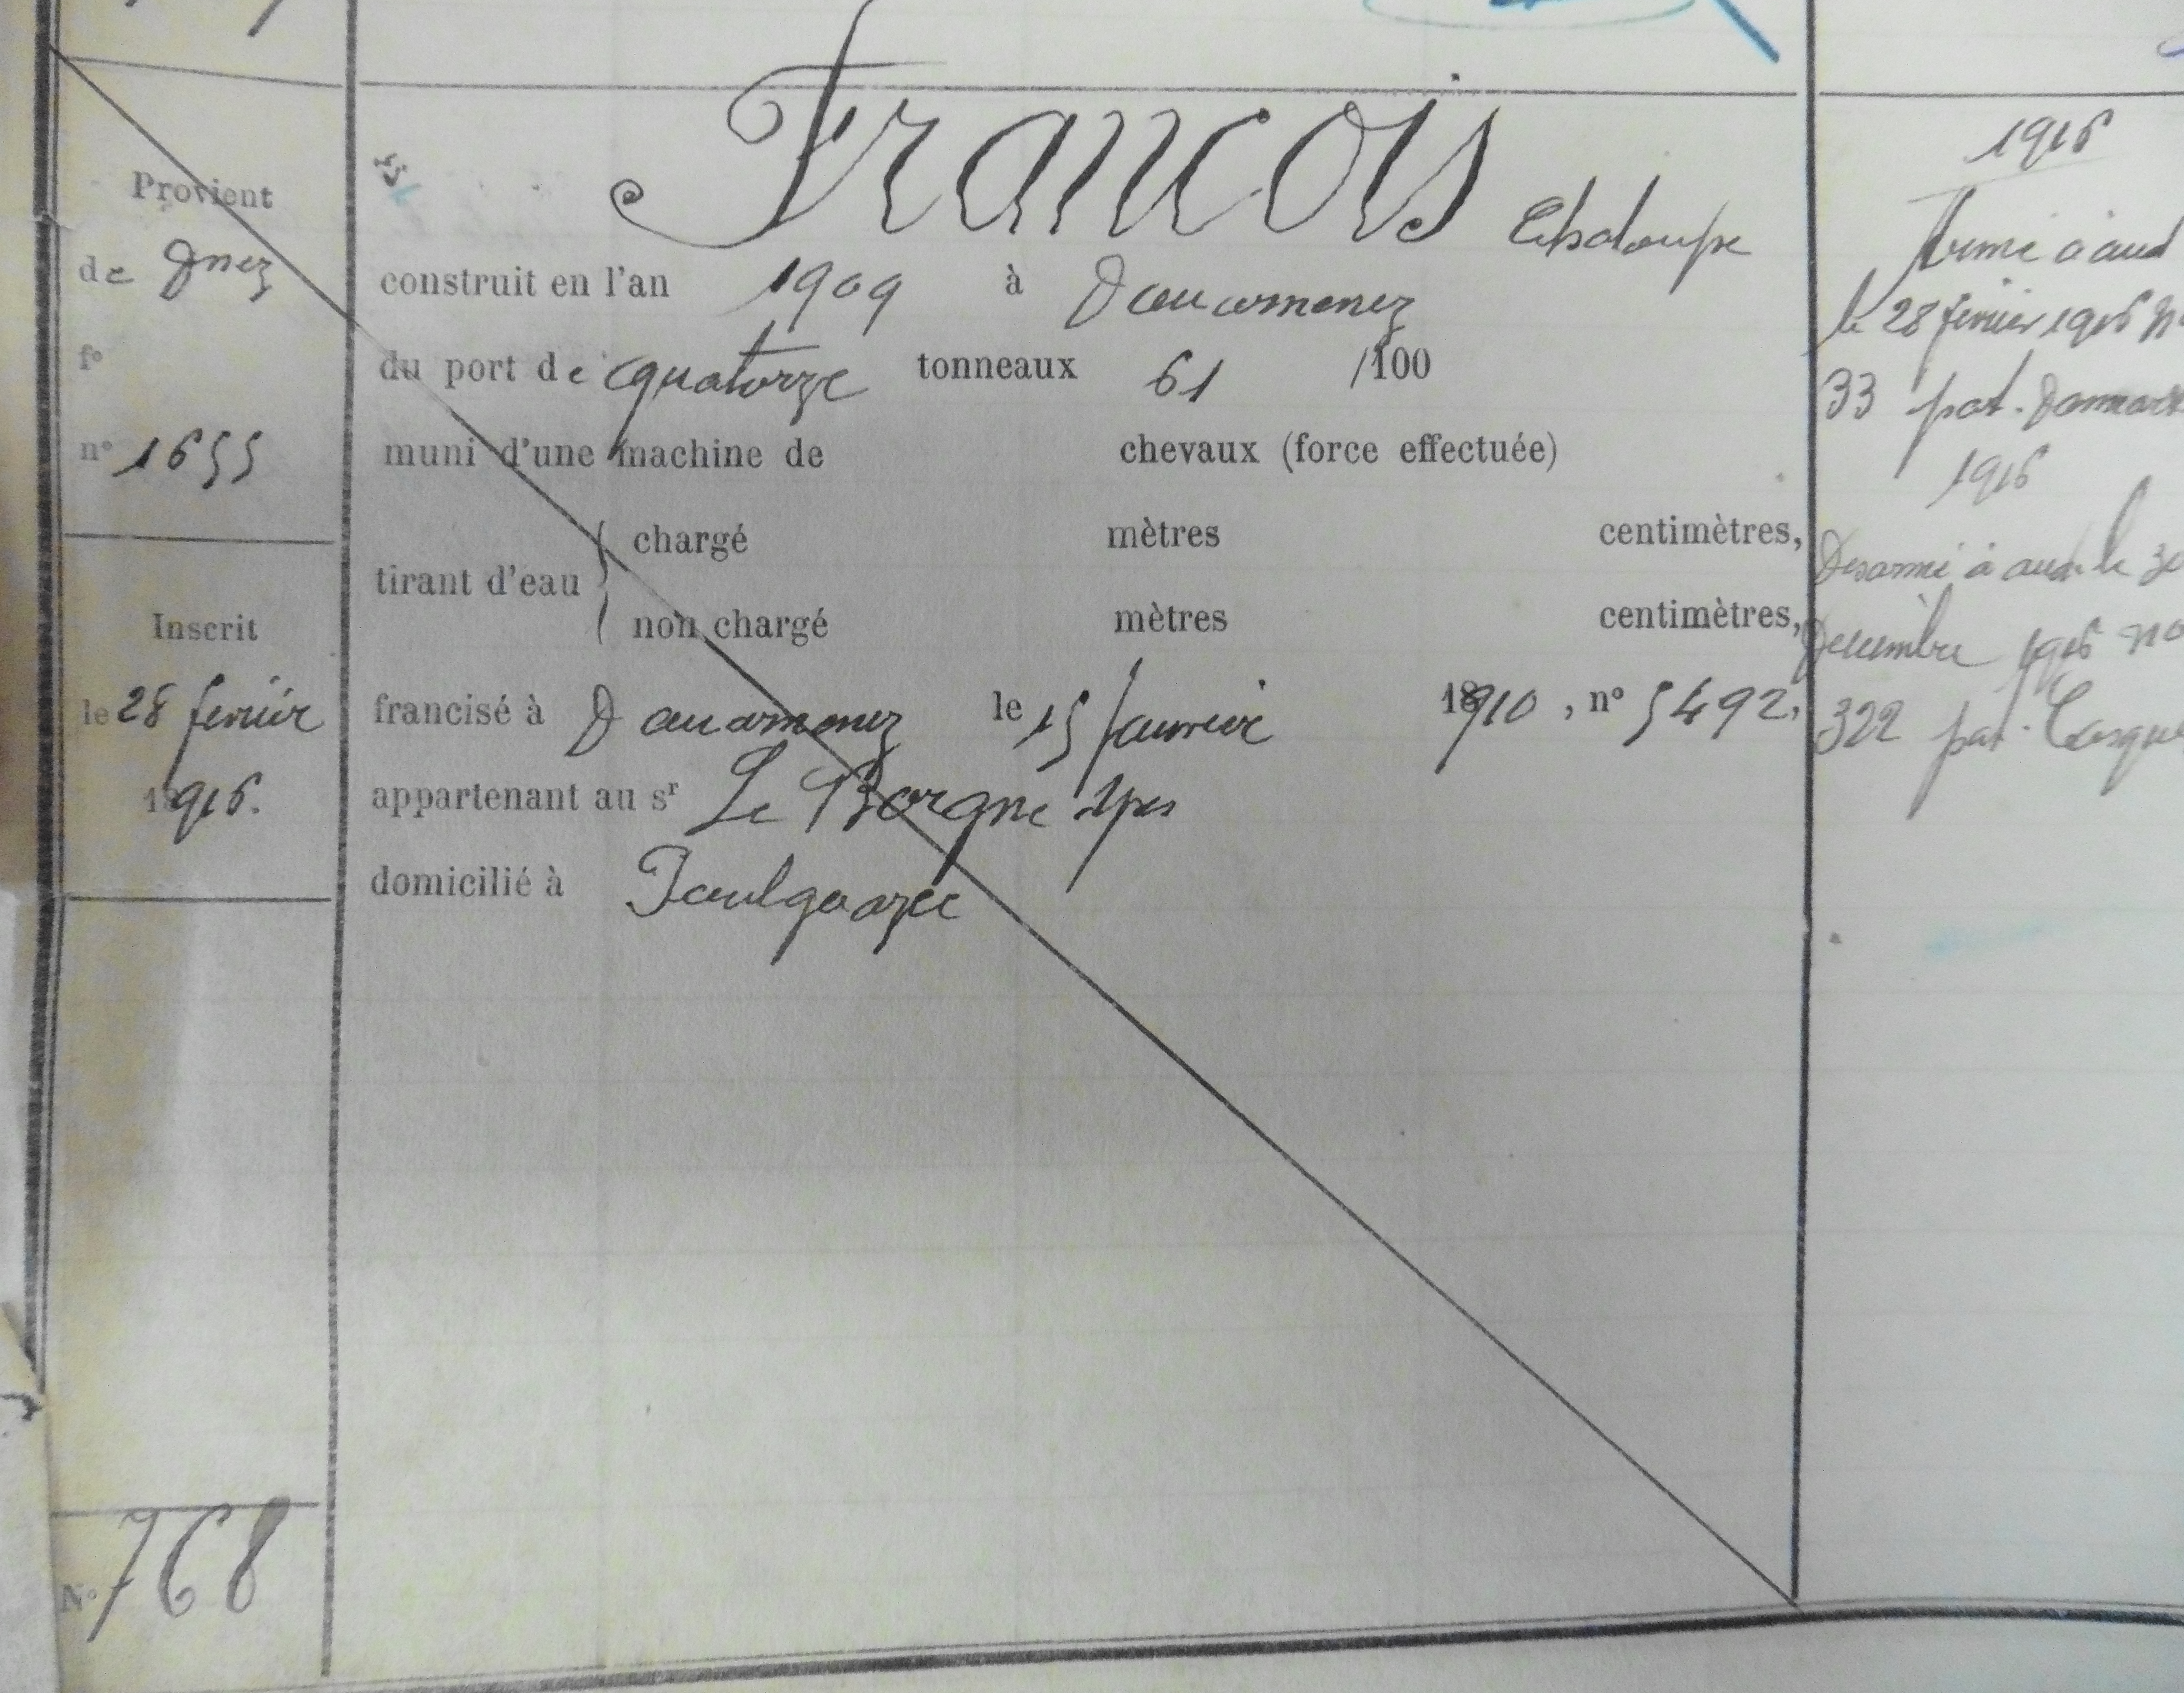 Provient
de Dnez
fº
nº 1655
Inscrit
le 28 fevrier
1916.
Nº 768
Francois Chaloupe
construit en l'an 1909 à Douarnenez
du port de quatorze tonneaux 61 /100
muni d'une machine de chevaux (force effectuée)
tirant d'eau
chargé mètres centimètres,
non chargé mètres centimètres,
francisé à Douarnenez le 15 Janvier 1910, nº 5492,
appartenant au sr Le Borgne Yves
domicilié à Poulgoazec
1916
Armé à aud
le 28 fevrier 1916 Nº
33 pat.
1916
Desarmé à aud. le 30
Decembre 1916 nº
322 pat.